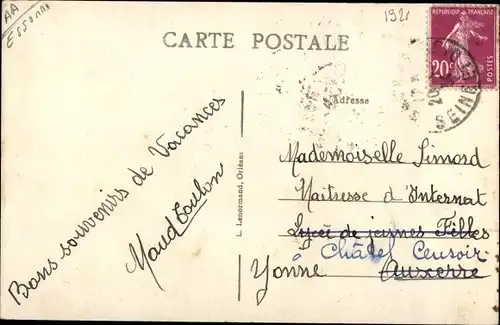 AA
1921
CARTE POSTALE
REPUBLIQUE FRANÇAISE
20c
POSTES
SEINE
Adresse
Bons souvenirs de Vacances
Maud Toulon
L. Lenormand, Orléans
Mademoiselle Simord
Maitresse d'Internat
Lycée de jeunes Filles
Châtel Censoir
Yonne Auxerre